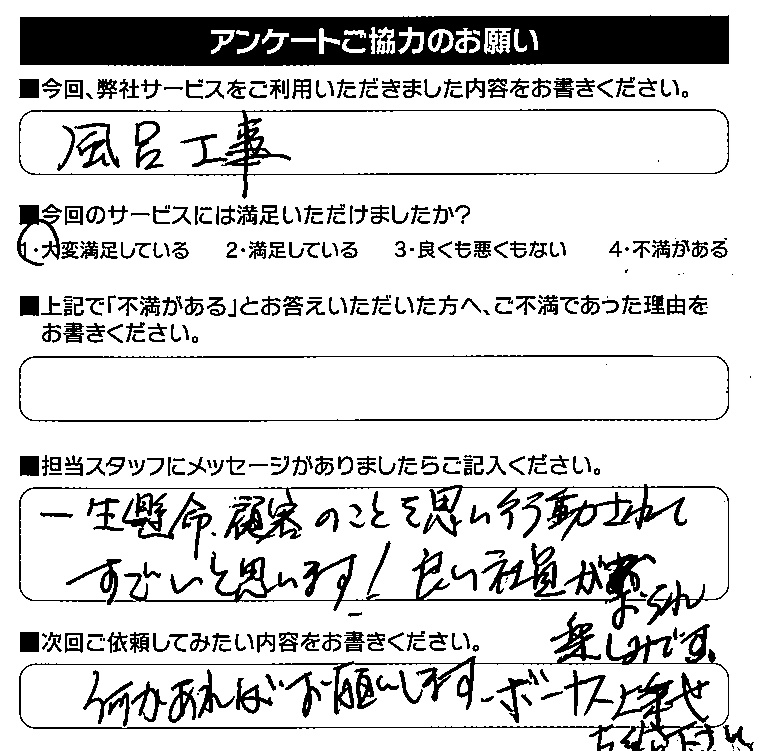 アンケートご協力のお願い
■今回、弊社サービスをご利用いただきました内容をお書きください。
風呂工事
■今回のサービスには満足いただけましたか?
1・大変満足している 2・満足している 3・良くも悪くもない 4・不満がある
■上記で「不満がある」とお答えいただいた方へ、ご不満であった理由を
お書きください。
■担当スタッフにメッセージがありましたらご記入ください。
一生懸命、顧客のことを思い行動されて
すごいと思います!良い社員が
おられ
楽しみです。
■次回ご依頼してみたい内容をお書きください。
何かあればお願いします。ボーナス上乗せ
下さい